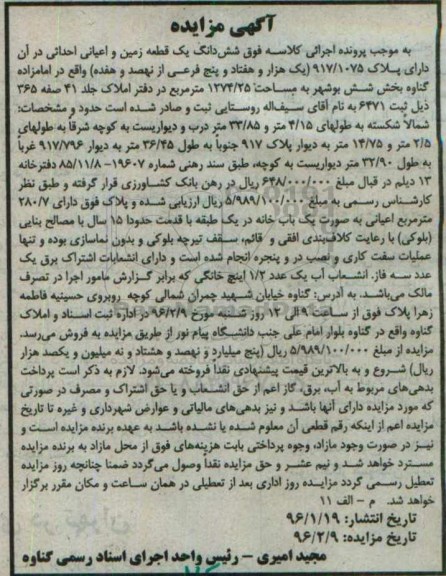 آگهی مزایده
به موجب پرونده اجرائی کلاسه فوق شش‌دانگ یک قطعه زمین و اعیانی احداثی در آن
دارای پلاک ۹۱۷/۱۰۷۵ (یک هزار و هفتاد و پنج فرعی از نهصد و هفده) واقع در امامزاده
گناوه بخش شش بوشهر به مساحت ۱۲۷۴/۲۵ مترمربع در دفتر املاک جلد ۴۱ صفه ۳۶۵
ذیل ثبت ۶۴۷۱ به نام آقای سیف‌اله روستایی ثبت و صادر شده است حدود و مشخصات:
شمالاً شکسته به طولهای ۴/۱۵ متر و ۳۳/۸۵ متر درب و دیواریست به کوچه شرقاً به طولهای
۲/۵ متر و ۱۴/۷۵ متر به دیوار پلاک ۹۱۷ جنوباً به طول ۳۶/۴۵ متر به دیوار ۹۱۷/۷۹۶ غرباً
به طول ۳۲/۹۰ متر دیواریست به کوچه، طبق سند رهنی شماره ۱۹۶۰۷-۸۵/۱۱/۸ دفترخانه
۱۳ دیلم در قبال مبلغ ۶۴۸/۰۰۰/۰۰۰ ریال در رهن بانک کشاورزی قرار گرفته و طبق نظر
کارشناس رسمی به مبلغ ۵/۹۸۹/۱۰۰/۰۰۰ ریال ارزیابی شده و پلاک فوق دارای ۲۸۰/۷
مترمربع اعیانی به صورت یک باب خانه در یک طبقه با قدمت حدودا ۱۵ سال با مصالح بنایی
(بلوکی) با رعایت کلاف‌بندی افقی و قائم، سقف تیرچه بلوکی و بدون نماسازی بوده و تنها
عملیات سفت کاری و نصب در و پنجره انجام شده است و دارای انشعابات اشتراک برق یک
عدد سه فاز، انشعاب آب یک عدد ۱/۲ اینچ خانگی که برابر گزارش مامور اجرا در تصرف
مالک می‌باشد. به آدرس: گناوه خیابان شهید چمران شمالی کوچه روبروی حسینیه فاطمه
زهرا پلاک فوق از ساعت ۹ الی ۱۲ روز شنبه مورخ ۹۶/۲/۹ در اداره ثبت اسناد و املاک
گناوه واقع در گناوه بلوار امام علی جنب دانشگاه پیام نور از طریق مزایده به فروش می‌رسد.
مزایده از مبلغ ۵/۹۸۹/۱۰۰/۰۰۰ ریال (پنج میلیارد و نهصد و هشتاد و نه میلیون و یکصد هزار
ریال) شروع و به بالاترین قیمت پیشنهادی نقداً فروخته می‌شود. لازم به ذکر است پرداخت
بدهی‌های مربوط به آب، برق، گاز اعم از حق انشعاب و یا حق اشتراک و مصرف در صورتی
که مورد مزایده دارای آنها باشد و نیز بدهی‌های مالیاتی و عوارض شهرداری و غیره تا تاریخ
مزایده اعم از اینکه رقم قطعی آن معلوم شده یا نشده باشد به عهده برنده مزایده است و
نیز در صورت وجود مازاد، وجوه پرداختی بابت هزینه‌های فوق از محل مازاد به برنده مزایده
مسترد خواهد شد و نیم عشر و حق مزایده نقداً وصول می‌گردد ضمنا چنانچه روز مزایده
تعطیل رسمی گردد مزایده روز اداری بعد از تعطیلی در همان ساعت و مکان مقرر برگزار
خواهد شد. م - الف ۱۱
تاریخ انتشار: ۹۶/۱/۱۹
تاریخ مزایده: ۹۶/۲/۹
مجید امیری - رئیس واحد اجرای اسناد رسمی گناوه